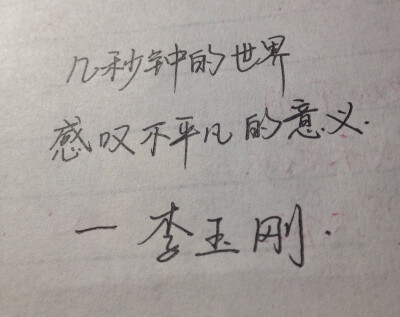 几秒钟的世界
感叹不平凡的意义.
— 李玉刚.